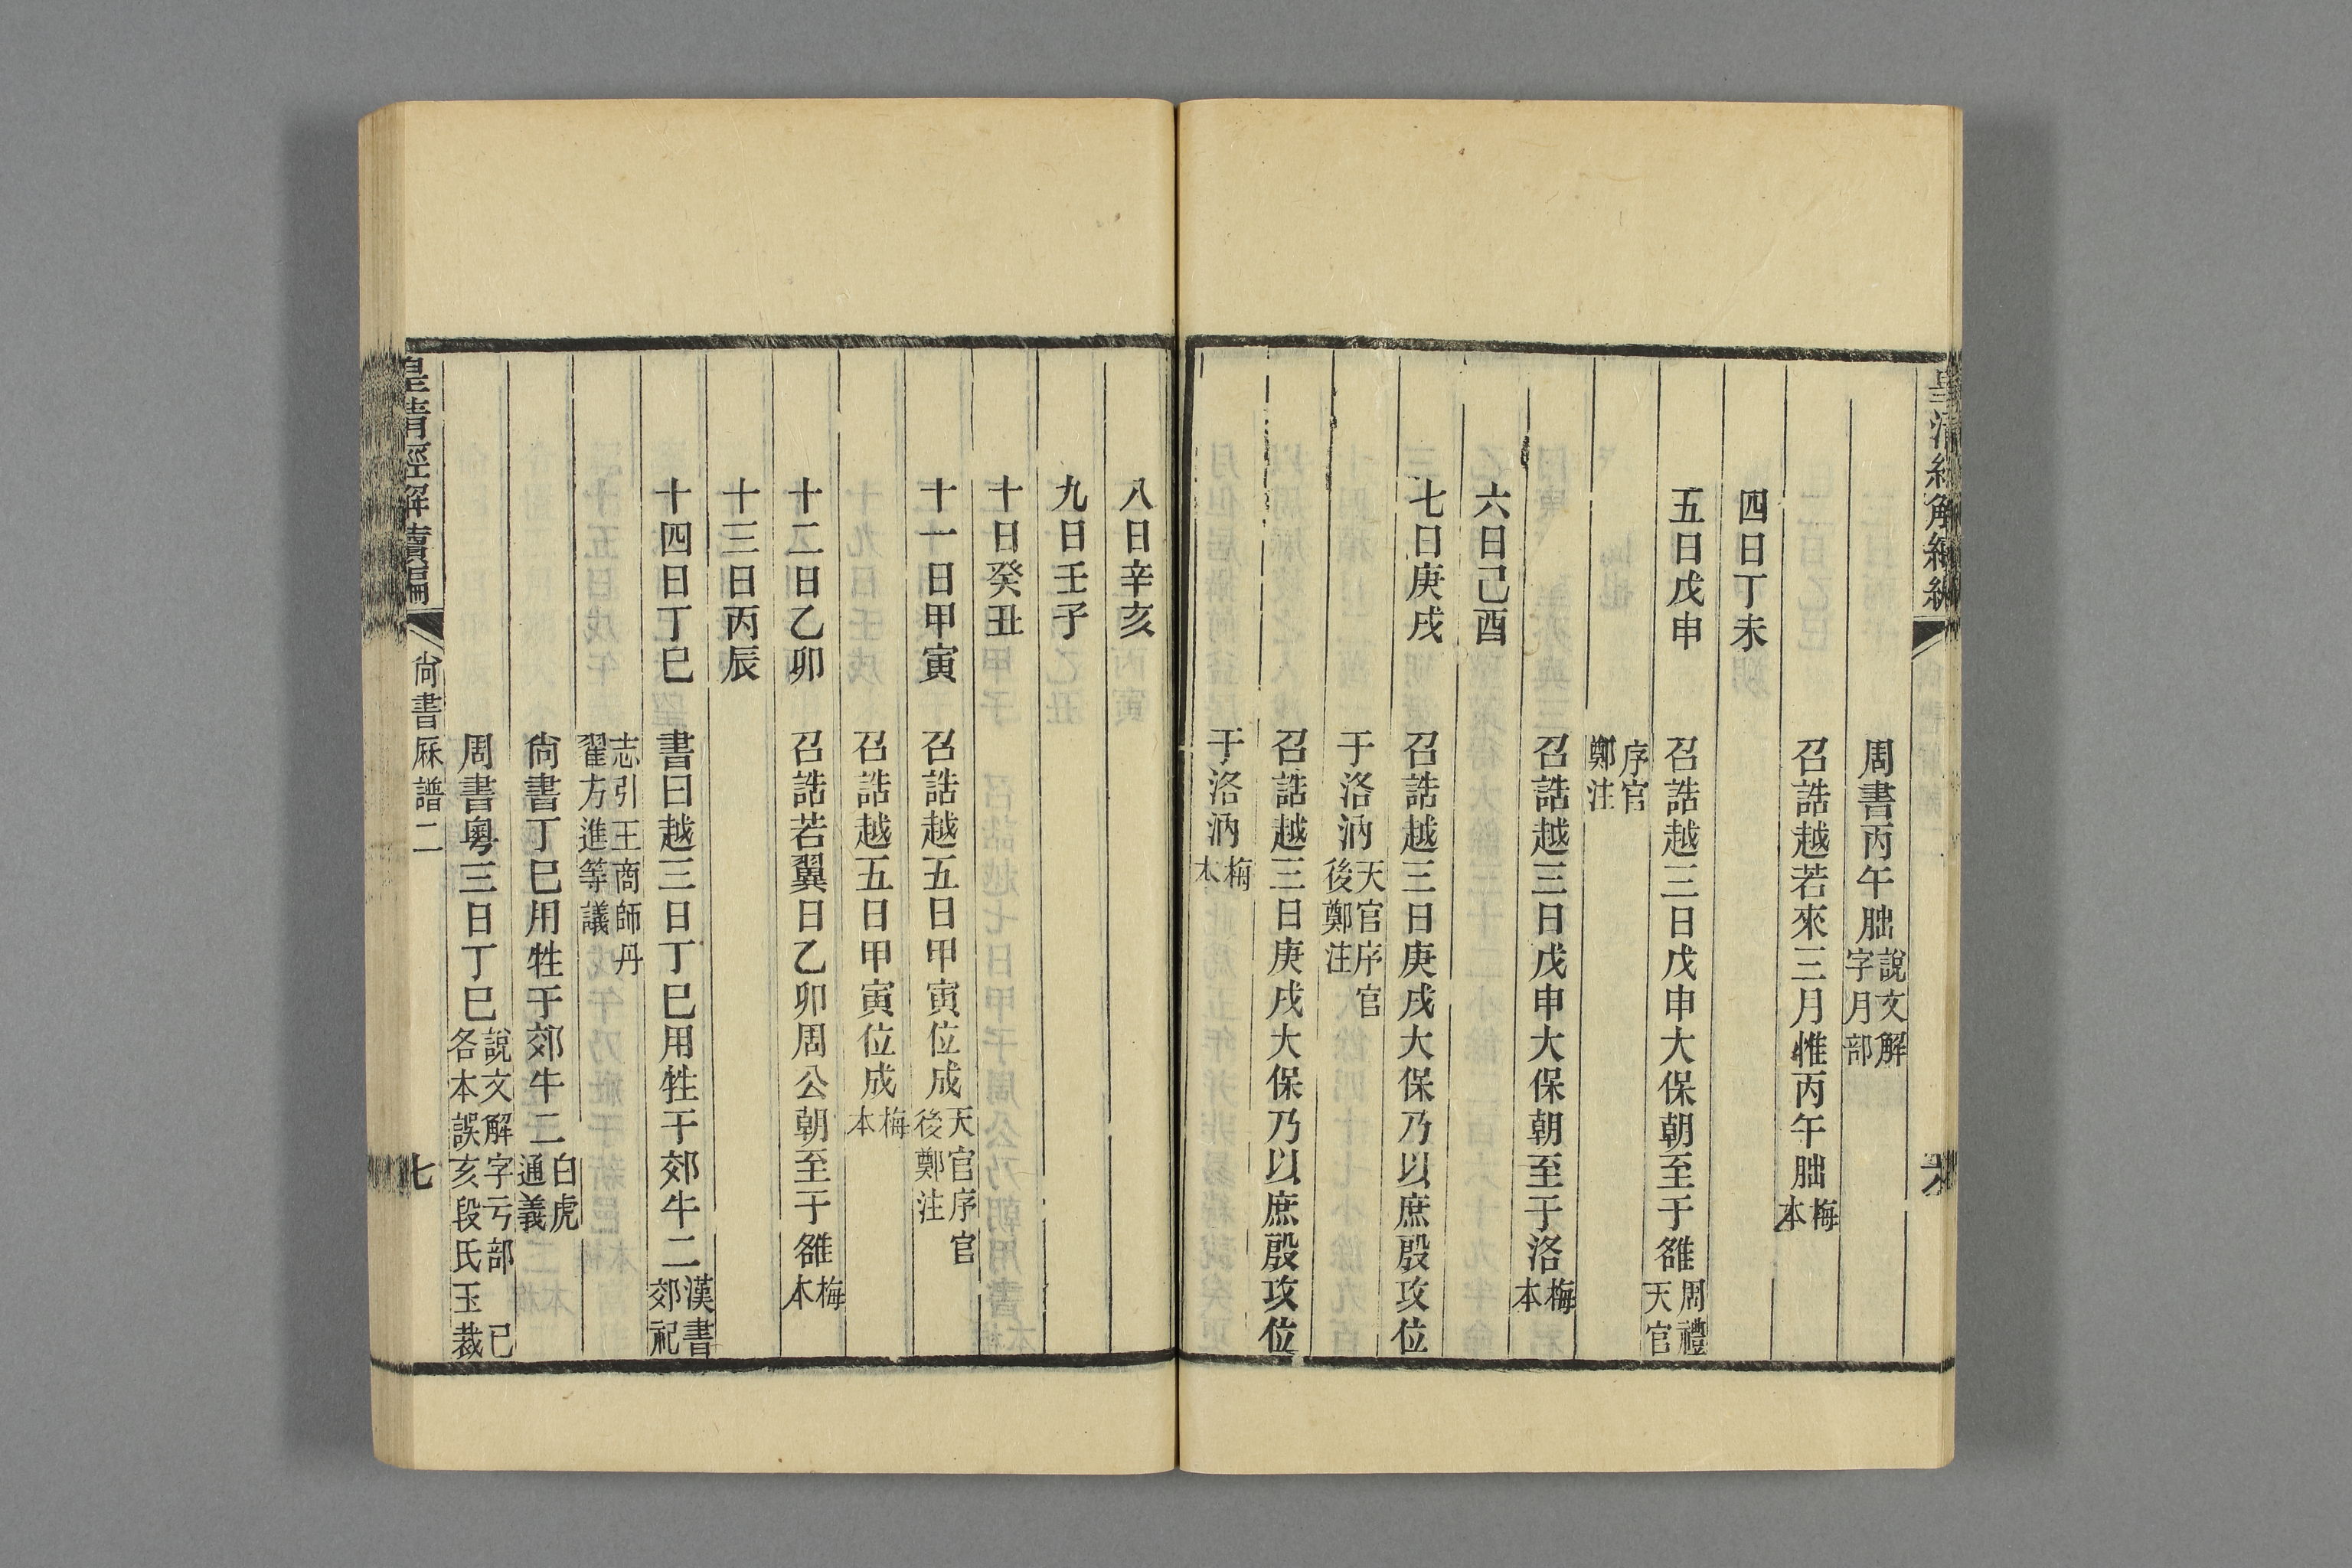 周書丙午朏說文解字月部
召誥越若來三月惟丙午朏梅本
四日丁未
五日戊申　召誥越三日戊申大保朝至于雒周禮天官
序官鄭注
召誥越三日戊申大保朝至于洛梅本
六日己酉
七日庚戌　召誥越三日庚戌大保乃以庶殷攻位
于洛汭天官序官後鄭注
召誥越三日庚戌大保乃以庶殷攻位
于洛汭梅本
八日辛亥
九日壬子
十日癸丑
十一日甲寅　召誥越五日甲寅位成天官序官後鄭注
召誥越五日甲寅位成梅本
十二日乙卯　召誥若翼日乙卯周公朝至于雒梅本
十三日丙辰
十四日丁巳　書曰越三日丁巳用牲于郊牛二漢書郊祀
志引王商師丹翟方進等議
尙書丁巳用牲于郊牛二白虎通義
周書粵三日丁巳說文解字亏部巳各本誤亥段氏玉裁
皇清經解續編　尙書厤譜二　七